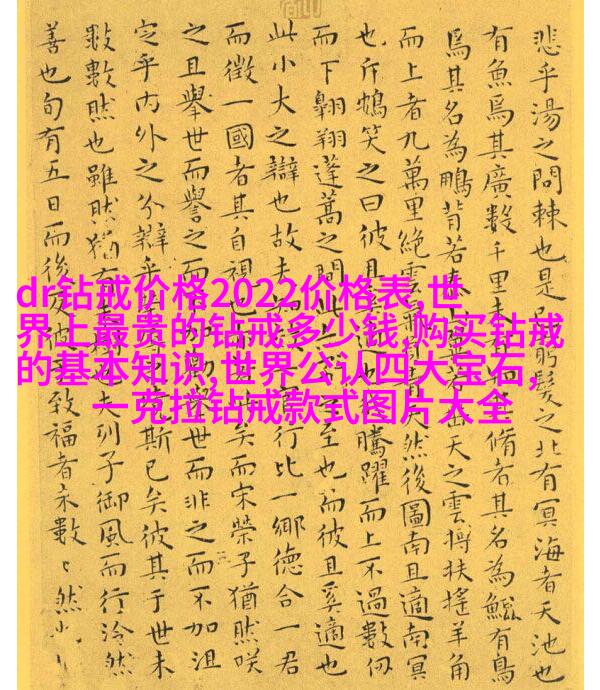 dr钻戒价格2022价格表,世
界上最贵的钻戒多少钱,购买钻戒
的基本知识,世界公认四大宝石,
一克拉钻戒款式图片大全
悲乎湯之問棘也是窮髮之北有冥海者天池也
有魚焉其廣數千里未脩者其名為鯤有鳥
焉其名為鵬背若泰山若垂天之雲摶扶搖羊角
而上者九萬里絕雲天然後圖南且適南冥
也斥笑之曰彼且騰躍而上不過數仞
而下翱翔蓬蒿之間此至也而彼且奚適也
此小大之辯也故夫官行比一鄉德合一君
而徵一國者其自視也矣而宋榮子猶然
之且舉世而譽之而舉世而非之而不加沮
定乎內外之分辯乎斯已矣彼其于世未
數數然也雖然猶有夫列子御風而行泠然
善也旬有五日而後反彼致福者未數